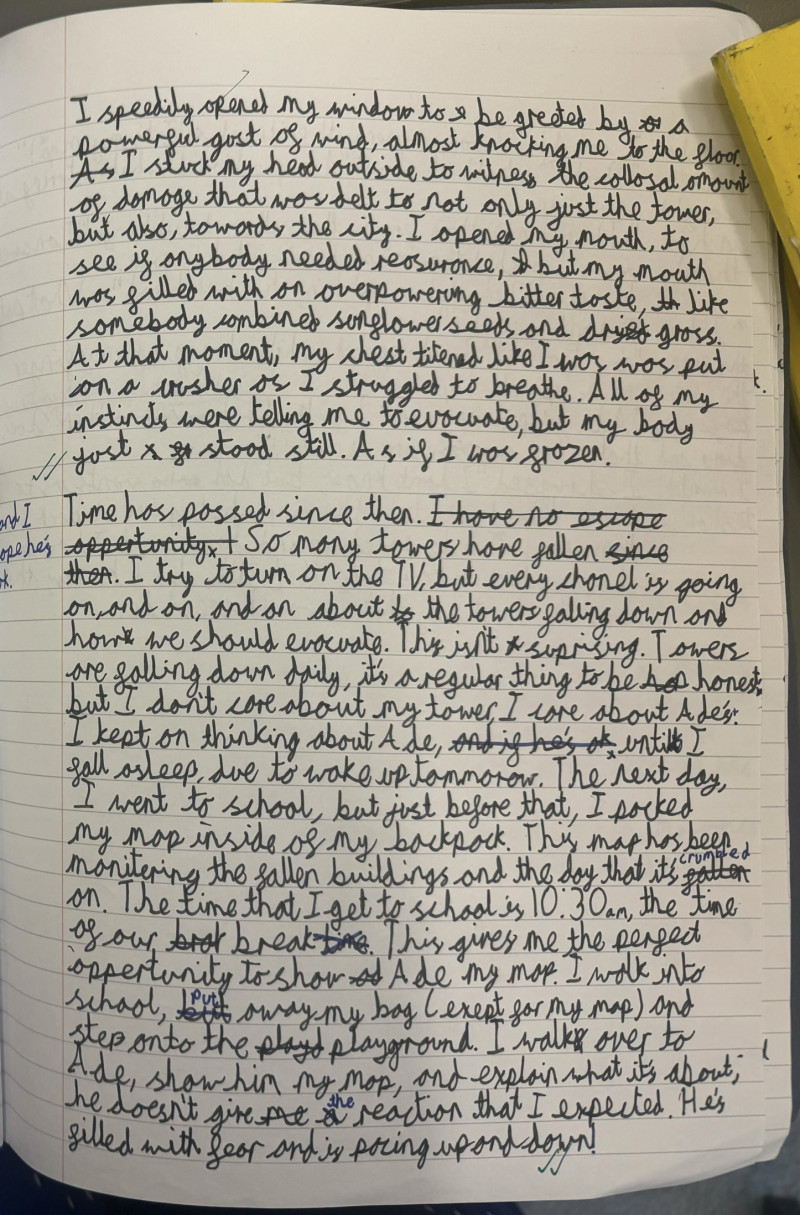 I speedily opened my window to be greeted by a
powerful gust of wind, almost knocking me to the floor.
As I stuck my head outside to witness the collosal amount
of damage that was delt to not only just the tower,
but also, towards the city. I opened my mouth, to
see if anybody needed reasurance, but my mouth
was filled with an overpowering bitter taste, like
somebody combined sunflower seeds and dried grass.
At that moment, my chest titened like I was was put
in a crusher as I struggled to breathe. All of my
instincts were telling me to evacuate, but my body
just stood still. As if I was frozen.
Time has passed since then. I have no escape
oppertunity. So many towers have fallen since
then. I try to turn on the TV, but every chanel is going
on, and on, and on about the towers falling down and
how we should evacuate. This isn't suprising. Towers
are falling down daily, it's a regular thing to be honest,
but I don't care about my tower, I care about Ade's.
I kept on thinking about Ade, and if he's ok, until I
and I
ope he's
ok.
fall asleep, due to wake up tommorow. The next day,
I went to school, but just before that, I packed
my map inside of my backpack. This map has been
monitering the fallen buildings and the day that it's fallen
crumbled
on. The time that I get to school is 10:30am, the time
of our break time. This gives me the perfect
oppertunity to show Ade my map. I walk into
school, put away my bag (exept for my map) and
step onto the playground. I walk over to
Ade, show him my map, and explain what it's about,
he doesn't give me the reaction that I expected. He's
filled with fear and is pacing up and down!